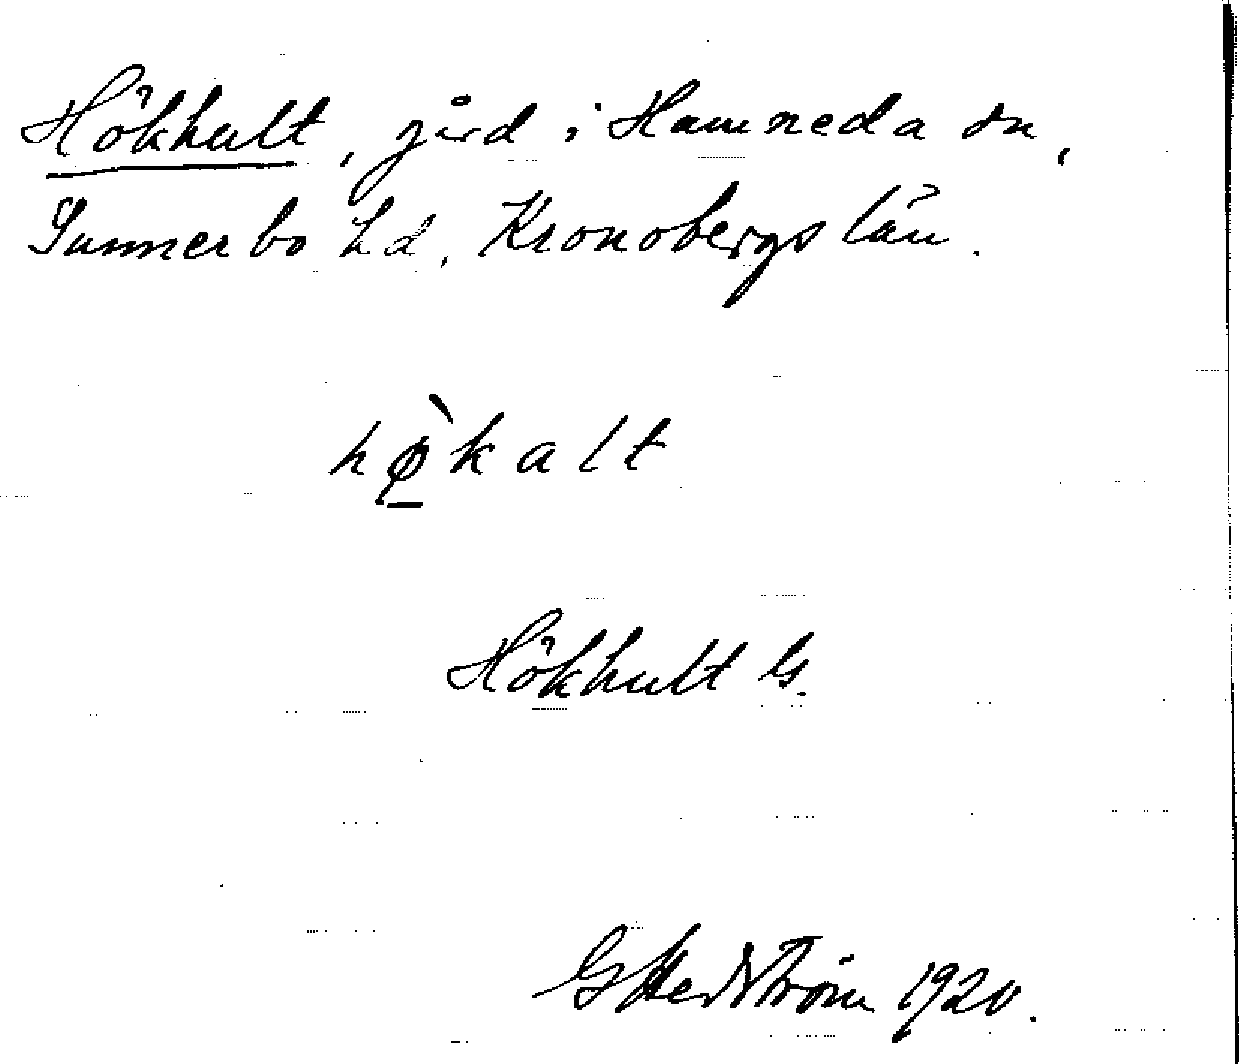 Hökhult, gård i Hamneda sn,
Sunnerbo hd, Kronobergs län.
hø̱̀kalt
Hökhult G.
G Hedström 1920.